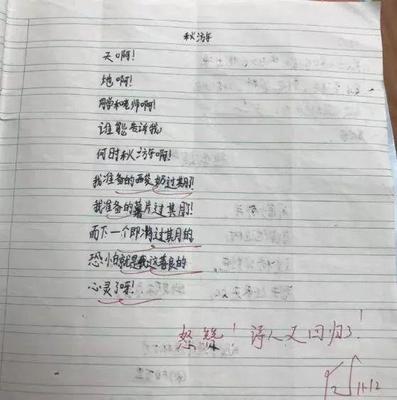 秋游
天啊!
地啊!
同学和老师啊!
谁能告诉我
何时秋游啊!
我准备的酸奶过期!
我准备的薯片过期!
而下一个即将过期的
恐怕就是我这善良的
心灵了呀!
怒赞！诗人又回归了！
11.12